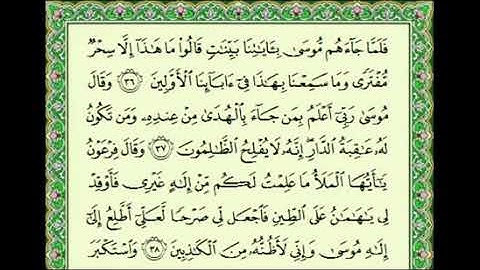 فَلَمَّا جَآءَهُم مُّوسَىٰ بِـَٔايَٰتِنَا بَيِّنَٰتٍ قَالُوا۟ مَا هَٰذَآ إِلَّا سِحْرٌ
مُّفْتَرًى وَمَا سَمِعْنَا بِهَٰذَا فِىٓ ءَابَآئِنَا ٱلْأَوَّلِينَ ٣٦ وَقَالَ
مُوسَىٰ رَبِّىٓ أَعْلَمُ بِمَن جَآءَ بِٱلْهُدَىٰ مِنْ عِندِهِۦ وَمَن تَكُونُ
لَهُۥ عَٰقِبَةُ ٱلدَّارِ إِنَّهُۥ لَا يُفْلِحُ ٱلظَّٰلِمُونَ ٣٧ وَقَالَ فِرْعَوْنُ
يَٰٓأَيُّهَا ٱلْمَلَأُ مَا عَلِمْتُ لَكُم مِّنْ إِلَٰهٍ غَيْرِى فَأَوْقِدْ
لِى يَٰهَٰمَٰنُ عَلَى ٱلطِّينِ فَٱجْعَل لِّى صَرْحًا لَّعَلِّىٓ أَطَّلِعُ إِلَىٰٓ
إِلَٰهِ مُوسَىٰ وَإِنِّى لَأَظُنُّهُۥ مِنَ ٱلْكَٰذِبِينَ ٣٨ وَٱسْتَكْبَرَ